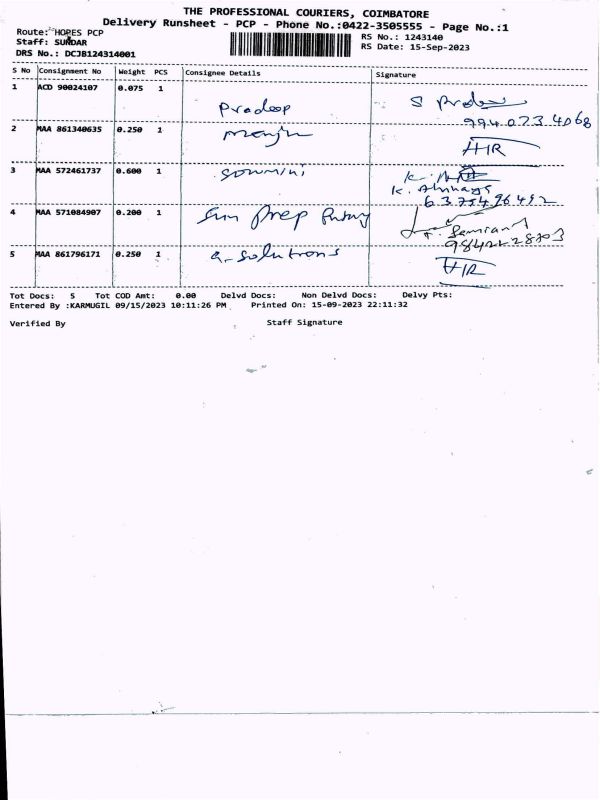 THE PROFESSIONAL COURIERS, COIMBATORE
Delivery Runsheet - PCP - Phone No.:0422-3505555 - Page No.:1
Route: HOPES PCP
Staff: SUNDAR
DRS No.: DCJB124314001
RS No.: 1243140
RS Date: 15-Sep-2023
S No Consignment No Weight PCS Consignee Details Signature
1 ACD 90024107 0.075 1 Pradeep S Pradeep
994 073 4068
2 MAA 861340635 0.250 1 Manju HR
3 MAA 572461737 0.600 1 Sowmini
K.
6375496492
4 MAA 571084907 0.200 1 Sun Prep
98422 28703
5 MAA 861796171 0.250 1 a-solutions HR
Tot Docs: 5 Tot COD Amt: 0.00 Delvd Docs: Non Delvd Docs: Delvy Pts:
Entered By :KARMUGIL 09/15/2023 10:11:26 PM Printed On: 15-09-2023 22:11:32
Verified By Staff Signature